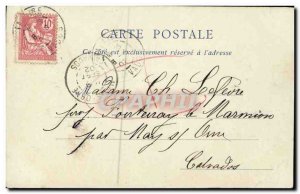 CARTE POSTALE
Ce côté est exclusivement réservé à l'adresse
10
Madame Ch. Lefèvre
par Fontenay le Marmion
par May s/ Orne
Calvados